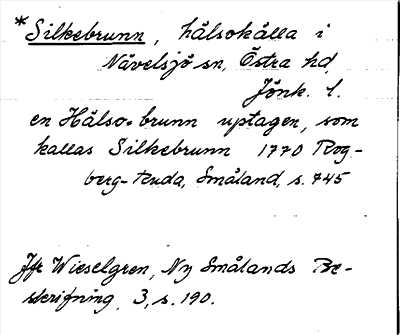 *Silkebrunn, hälsokälla i
Nävelsjö sn, Östra hd,
Jönk. l.
en Hälso-brunn uptagen, som
kallas Silkebrunn 1770 Rog-
berg-Ruda, Småland, s. 745
Jfr Wieselgren, Ny Smålands Be-
skrifning, 3, s. 190.